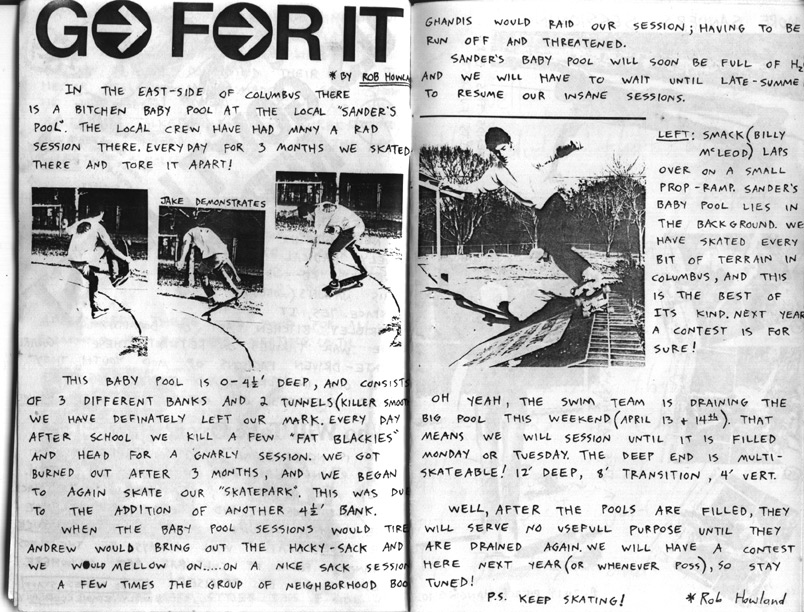 GO FOR IT
* BY ROB HOWLA
IN THE EAST-SIDE OF COLUMBUS THERE
IS A BITCHEN BABY POOL AT THE LOCAL "SANDER'S
POOL". THE LOCAL CREW HAVE HAD MANY A RAD
SESSION THERE. EVERYDAY FOR 3 MONTHS WE SKATED
THERE AND TORE IT APART!
JAKE DEMONSTRATES
THIS BABY POOL IS 0-4½' DEEP, AND CONSISTS
OF 3 DIFFERENT BANKS AND 2 TUNNELS (KILLER SMOOT
WE HAVE DEFINATELY LEFT OUR MARK. EVERY DAY
AFTER SCHOOL WE KILL A FEW "FAT BLACKIES"
AND HEAD FOR A GNARLY SESSION. WE GOT
BURNED OUT AFTER 3 MONTHS, AND WE BEGAN
TO AGAIN SKATE OUR "SKATEPARK". THIS WAS DUE
TO THE ADDITION OF ANOTHER 4½' BANK.
WHEN THE BABY POOL SESSIONS WOULD TIRE
ANDREW WOULD BRING OUT THE HACKY-SACK AND
WE WOULD MELLOW ON.....ON A NICE SACK SESSION
A FEW TIMES THE GROUP OF NEIGHBORHOOD BOO
GHANDIS WOULD RAID OUR SESSION; HAVING TO BE
RUN OFF AND THREATENED.
SANDER'S BABY POOL WILL SOON BE FULL OF H2
AND WE WILL HAVE TO WAIT UNTIL LATE-SUMME
TO RESUME OUR INSANE SESSIONS.
LEFT: SMACK (BILLY
McLEOD) LAPS
OVER ON A SMALL
PROP-RAMP. SANDER'S
BABY POOL LIES IN
THE BACKGROUND. WE
HAVE SKATED EVERY
BIT OF TERRAIN IN
COLUMBUS, AND THIS
IS THE BEST OF
ITS KIND. NEXT YEAR
A CONTEST IS FOR
SURE!
OH YEAH, THE SWIM TEAM IS DRAINING THE
BIG POOL THIS WEEKEND (APRIL 13 + 14th). THAT
MEANS WE WILL SESSION UNTIL IT IS FILLED
MONDAY OR TUESDAY. THE DEEP END IS MULTI-
SKATEABLE! 12' DEEP, 8' TRANSITION, 4' VERT.
WELL, AFTER THE POOLS ARE FILLED, THEY
WILL SERVE NO USEFULL PURPOSE UNTIL THEY
ARE DRAINED AGAIN. WE WILL HAVE A CONTEST
HERE NEXT YEAR (OR WHENEVER POSS), SO STAY
TUNED!
P.S. KEEP SKATING! * Rob Howland